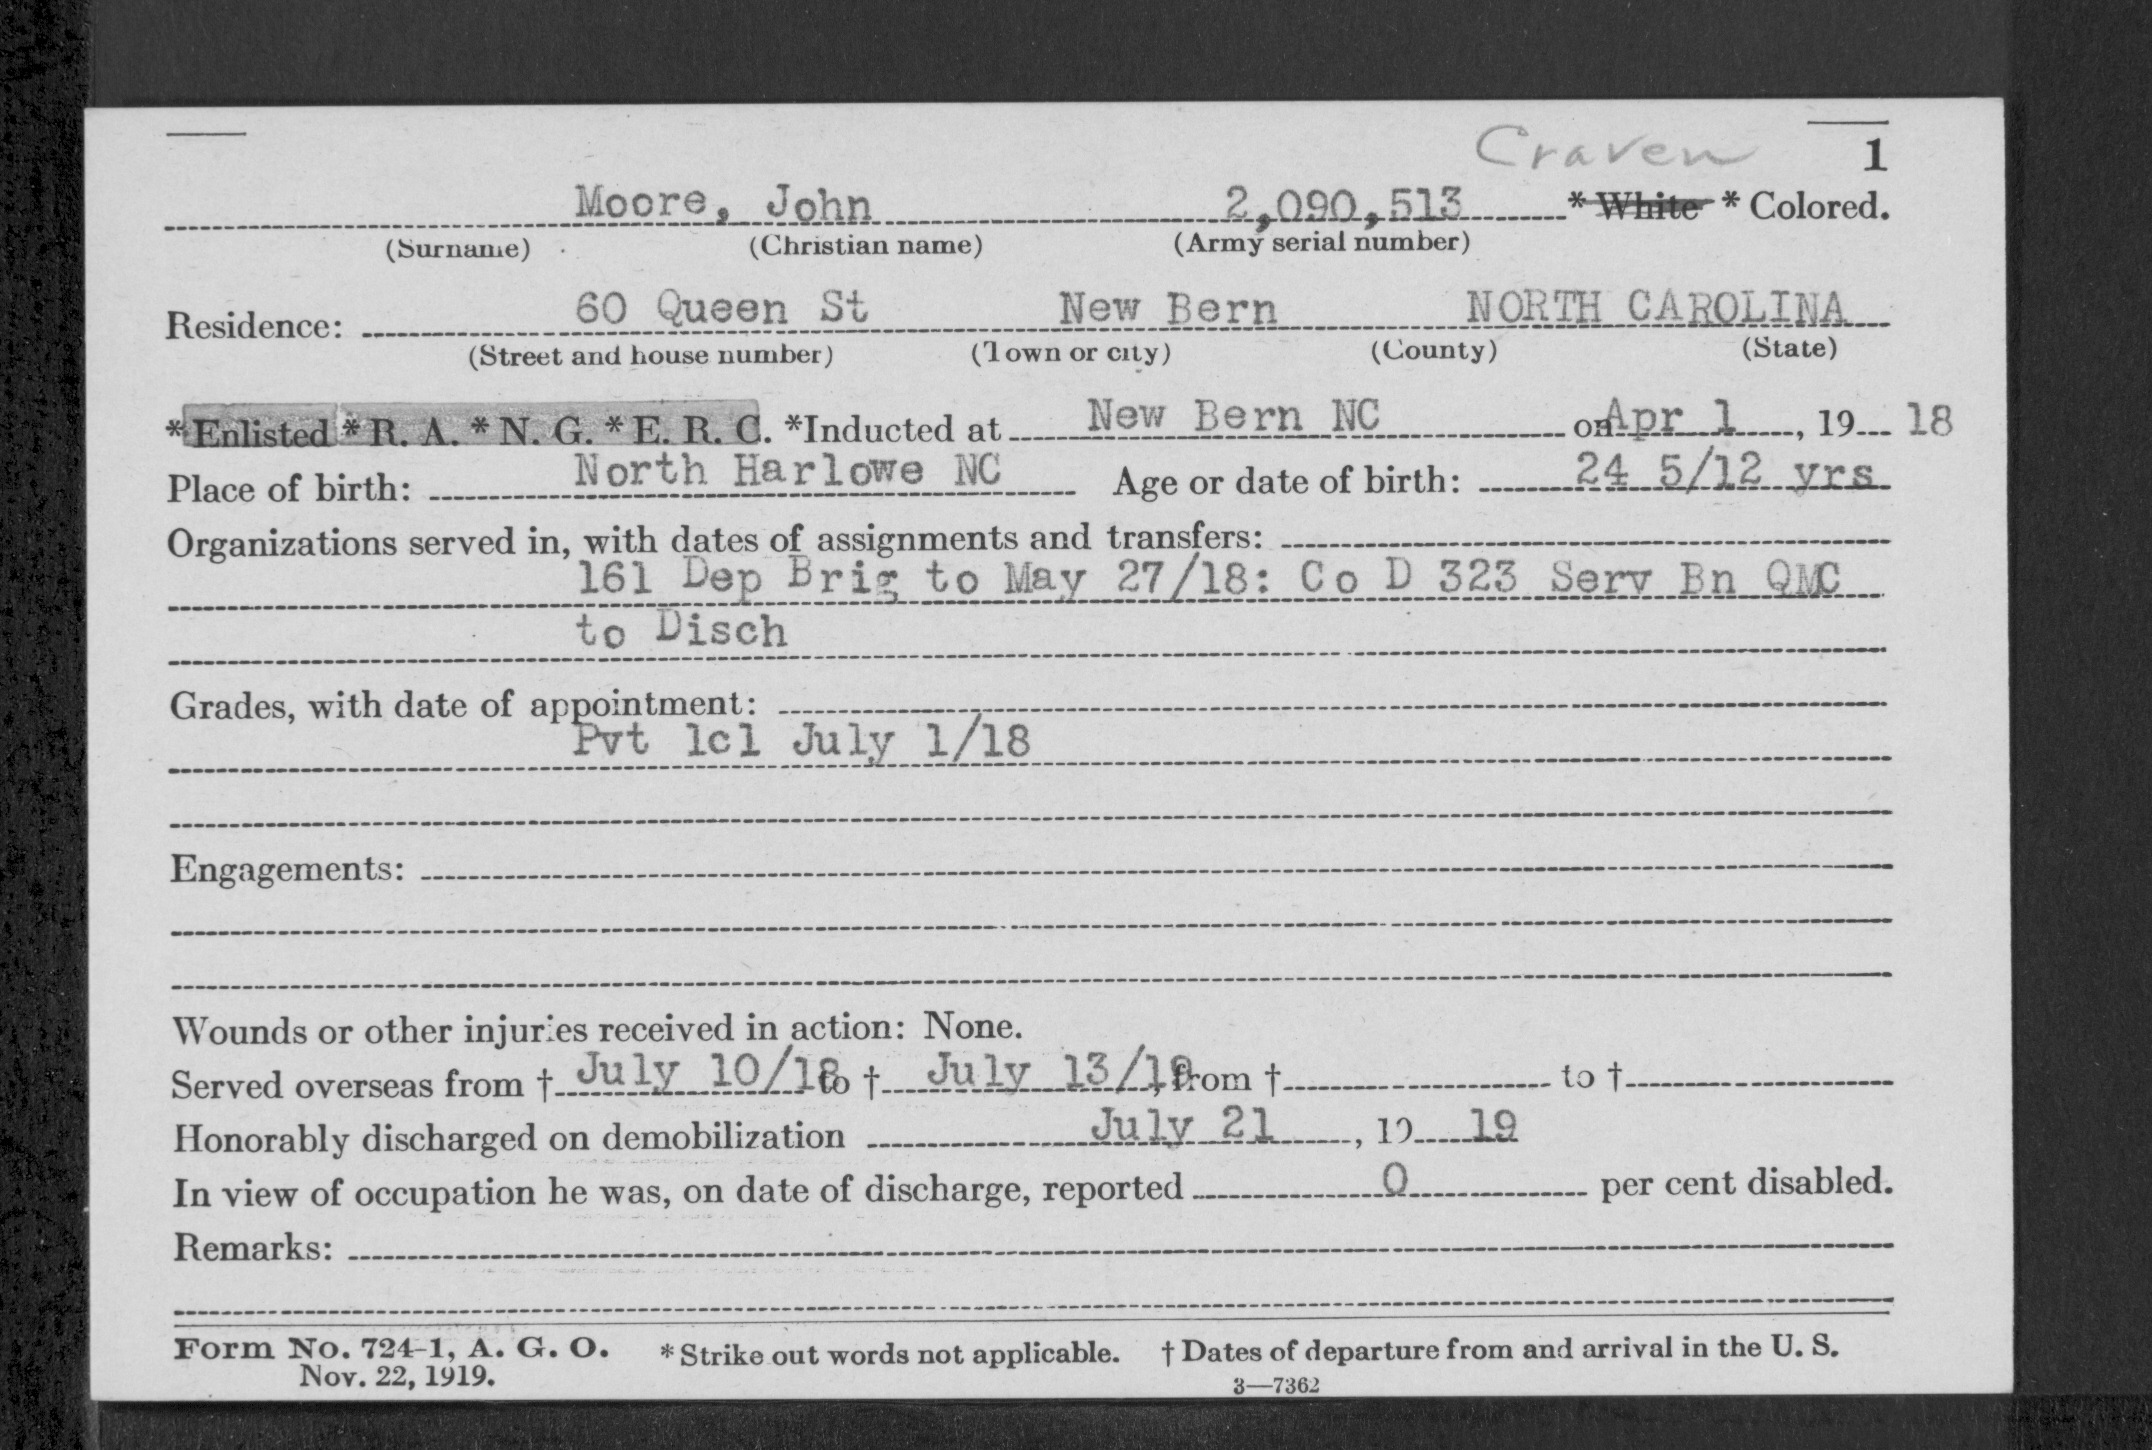 Craven 1
Moore, John 2,090,513 * White * Colored.
(Surname) (Christian name) (Army serial number)
Residence: 60 Queen St New Bern NORTH CAROLINA
(Street and house number) (Town or city) (County) (State)
*Enlisted *R. A. *N. G. *E. R. C. *Inducted at New Bern NC on Apr 1, 19 18
Place of birth: North Harlowe NC Age or date of birth: 24 5/12 yrs
Organizations served in, with dates of assignments and transfers:
161 Dep Brig to May 27/18: Co D 323 Serv Bn QMC
to Disch
Grades, with date of appointment:
Pvt 1cl July 1/18
Engagements:
Wounds or other injuries received in action: None.
Served overseas from † July 10/18 to † July 13/19, from † to †
Honorably discharged on demobilization July 21, 19 19
In view of occupation he was, on date of discharge, reported 0 per cent disabled.
Remarks:
Form No. 724-1, A. G. O. *Strike out words not applicable. † Dates of departure from and arrival in the U. S.
Nov. 22, 1919. 3—7362